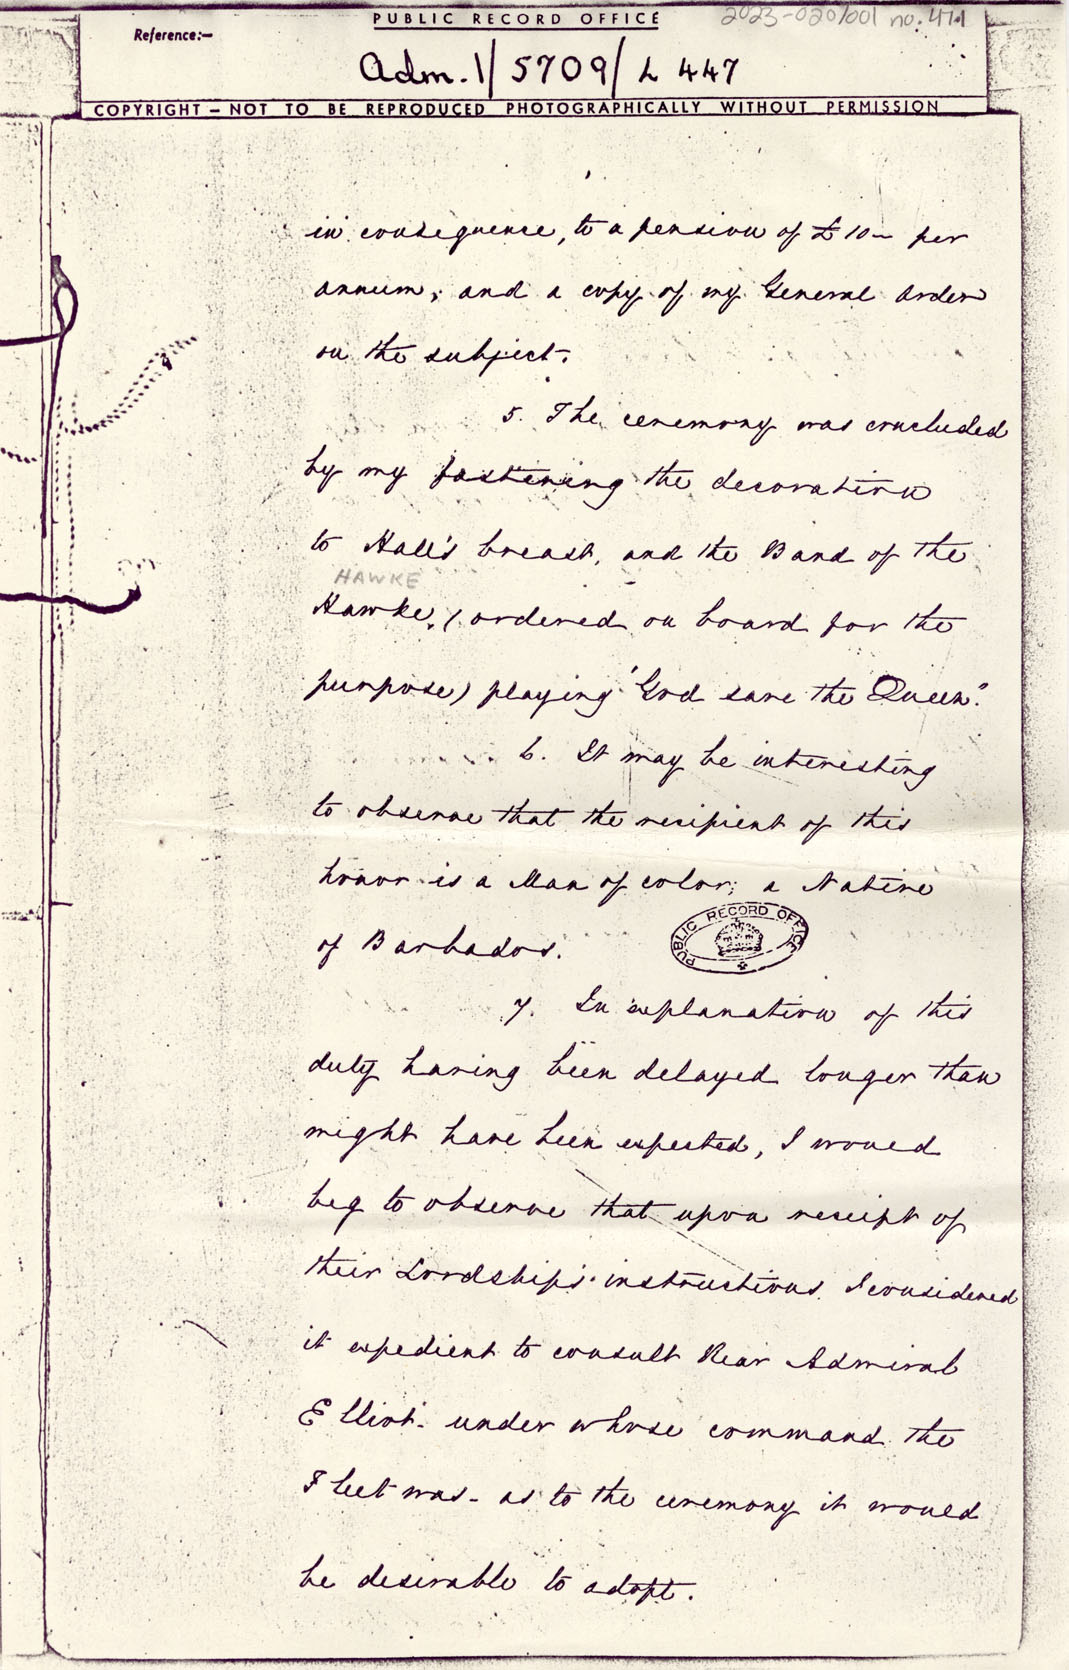 PUBLIC RECORD OFFICE
2023-0201001 no. 471
Reference:—
Adm. 1/5709/L 447
COPYRIGHT — NOT TO BE REPRODUCED PHOTOGRAPHICALLY WITHOUT PERMISSION
in consequence, to a pension of £10— per
annum, and a copy of my General Order
on the subject.
5. The ceremony was concluded
by my fastening the decoration
to Hall's breast, and the Band of the
HAWKE
Hawke, (ordered on board for the
purpose) playing 'God save the Queen."
6. It may be interesting
to observe that the recipient of this
honor is a Man of color; a Native
of Barbados.
PUBLIC RECORD OFFICE
7. In explanation of this
duty having been delayed longer than
might have been expected, I would
beg to observe that upon receipt of
their Lordships' instructions I considered
it expedient to consult Rear Admiral
Elliot - under whose command the
Fleet was - as to the ceremony it would
be desirable to adopt.